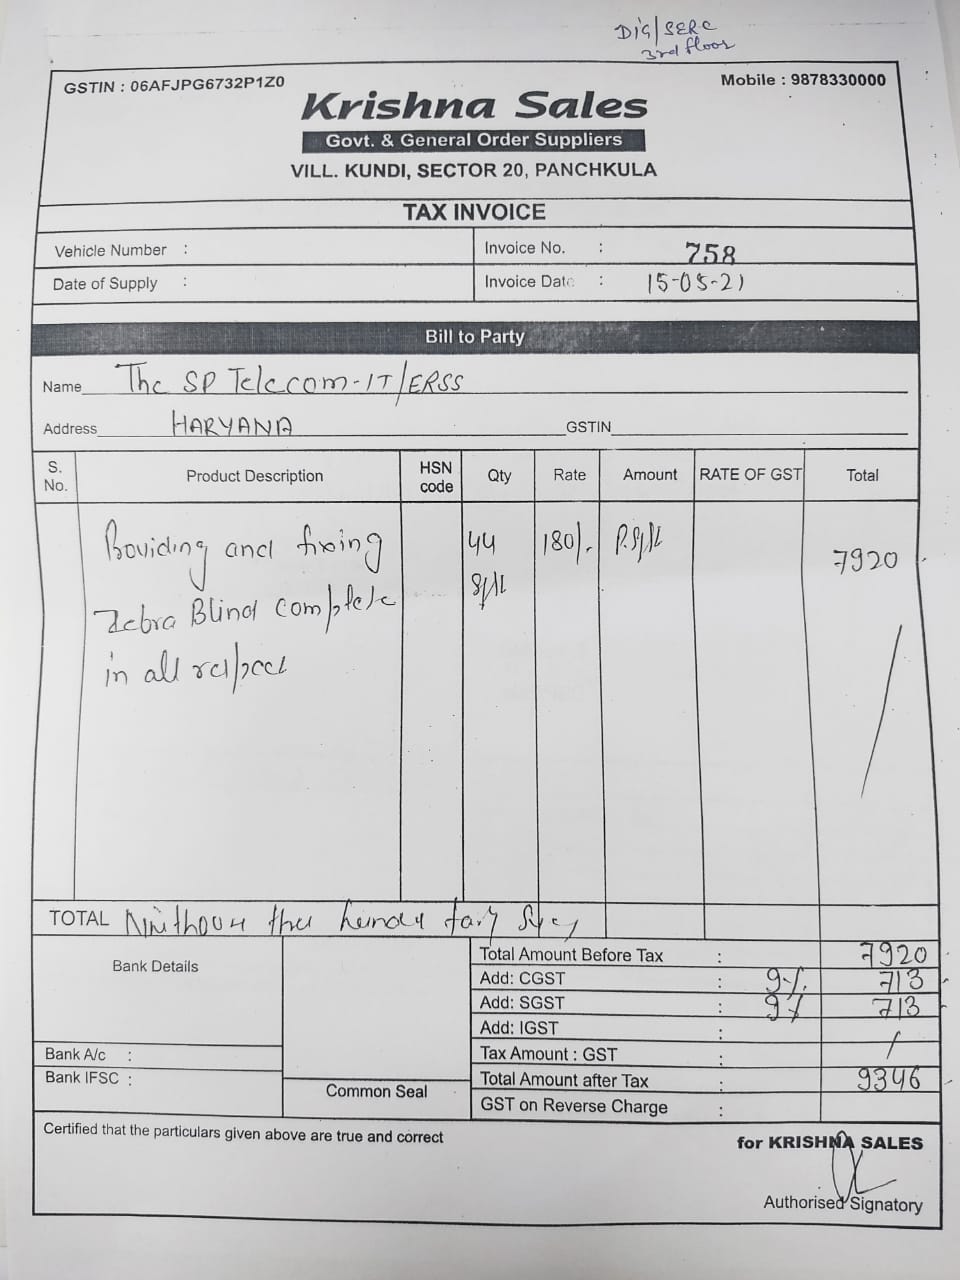 DIG/SERC
3rd floor
GSTIN : 06AFJPG6732P1Z0
Mobile : 9878330000
Krishna Sales
Govt. & General Order Suppliers
VILL. KUNDI, SECTOR 20, PANCHKULA
TAX INVOICE
Vehicle Number :
Invoice No. : 758
Date of Supply :
Invoice Date : 15-05-21
Bill to Party
Name The SP Telecom-IT/ERSS
Address HARYANA GSTIN
S. No. Product Description HSN code Qty Rate Amount RATE OF GST Total
Providing and fixing 44 180/- P.Sq/ft 7920
Zebra Blind complete Sq/ft
in all respect
TOTAL
Bank Details
Total Amount Before Tax : 7920
Add: CGST : 9% 713
Add: SGST : 9% 713
Add: IGST :
Tax Amount : GST : /
Bank A/c :
Total Amount after Tax : 9346
Bank IFSC :
Common Seal
GST on Reverse Charge :
Certified that the particulars given above are true and correct
for KRISHNA SALES
Authorised Signatory